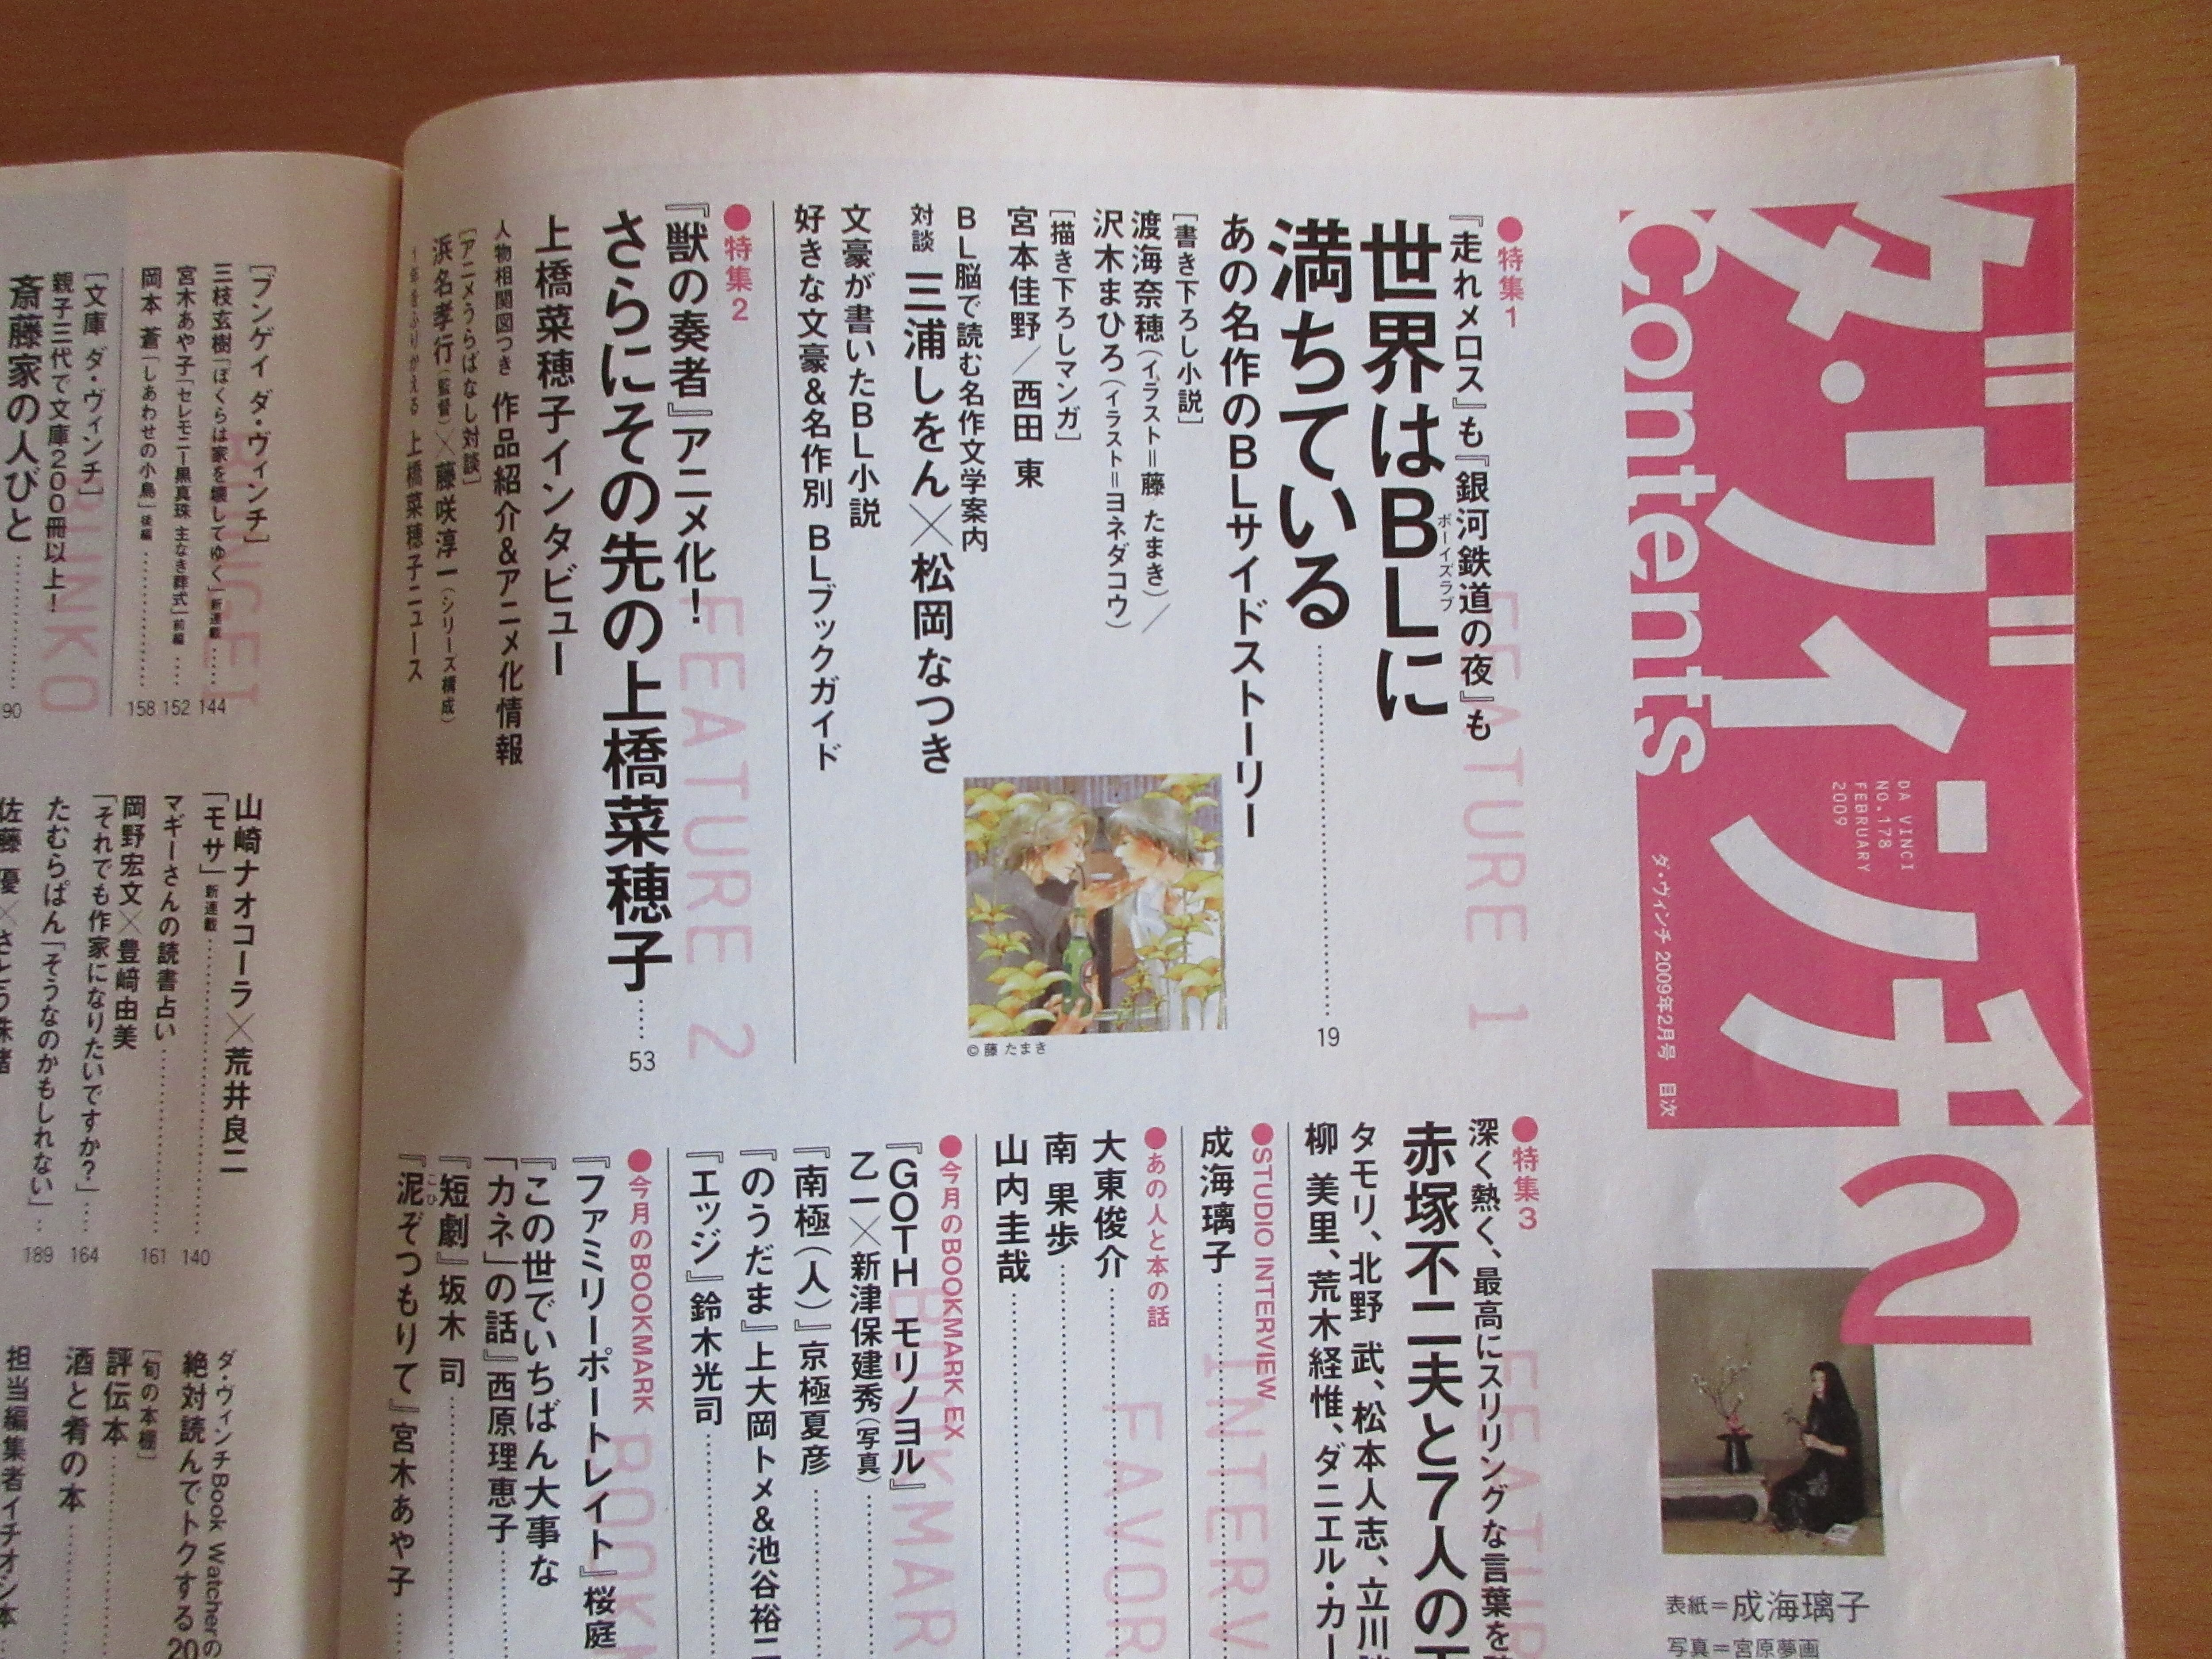 ダ・ヴィンチ
2
Contents
DA VINCI
NO.178
FEBRUARY
2009
ダ・ヴィンチ 2009年2月号 目次
表紙=成海璃子
写真=宮原夢画
FEATURE 1
●特集1
『走れメロス』も『銀河鉄道の夜』も
世界はBLに
ボーイズラブ
満ちている
19
あの名作のBLサイドストーリー
[書き下ろし小説]
渡海奈穂(イラスト=藤 たまき)/
沢木まひろ(イラスト=ヨネダコウ)
[描き下ろしマンガ]
宮本佳野/西田 東
BL脳で読む名作文学案内
対談 三浦しをん×松岡なつき
文豪が書いたBL小説
好きな文豪&名作別 BLブックガイド
©藤 たまき
FEATURE 2
●特集2
『獣の奏者』アニメ化!
さらにその先の上橋菜穂子
53
上橋菜穂子インタビュー
人物相関図つき 作品紹介&アニメ化情報
[アニメうらばなし対談]
浜名孝行(監督)×藤咲淳一(シリーズ構成)
1年をふりかえる 上橋菜穂子ニュース
●特集3
深く熱く、最高にスリリングな言葉を
赤塚不二夫と7人の
タモリ、北野 武、松本人志、立川
柳 美里、荒木経惟、ダニエル・カー
●STUDIO INTERVIEW
成海璃子
●あの人と本の話
大東俊介
南 果歩
山内圭哉
●今月のBOOKMARK EX
『GOTH モリノヨル』
乙一×新津保建秀(写真)
『南極(人)』京極夏彦
『のうだま』上大岡トメ&池谷裕二
『エッジ』鈴木光司
●今月のBOOKMARK
『ファミリーポートレイト』桜庭
『この世でいちばん大事な
「カネ」の話』西原理恵子
『短劇』坂木 司
『泥ぞつもりて』宮木あや子
こひ
BUNGEI
[ブンゲイ ダ・ヴィンチ]
三枝玄樹「ぼくらは家を壊してゆく」新連載 144
宮木あや子「セレモニー黒真珠 主なき葬式」前編 152
岡本 蒼「しあわせの小鳥」後編 158
BUNKO
[文庫 ダ・ヴィンチ]
親子三代で文庫200冊以上!
斎藤家の人びと 90
山崎ナオコーラ×荒井良二
「モサ」新連載 140
マギーさんの読書占い 161
岡野宏文×豊﨑由美
「それでも作家になりたいですか?」 164
たむらぱん「そうなのかもしれない」 189
ダ・ヴィンチBook Watcherの
絶対読んでトクする20
[旬の本棚]
評伝本
酒と肴の本
担当編集者イチオシ本